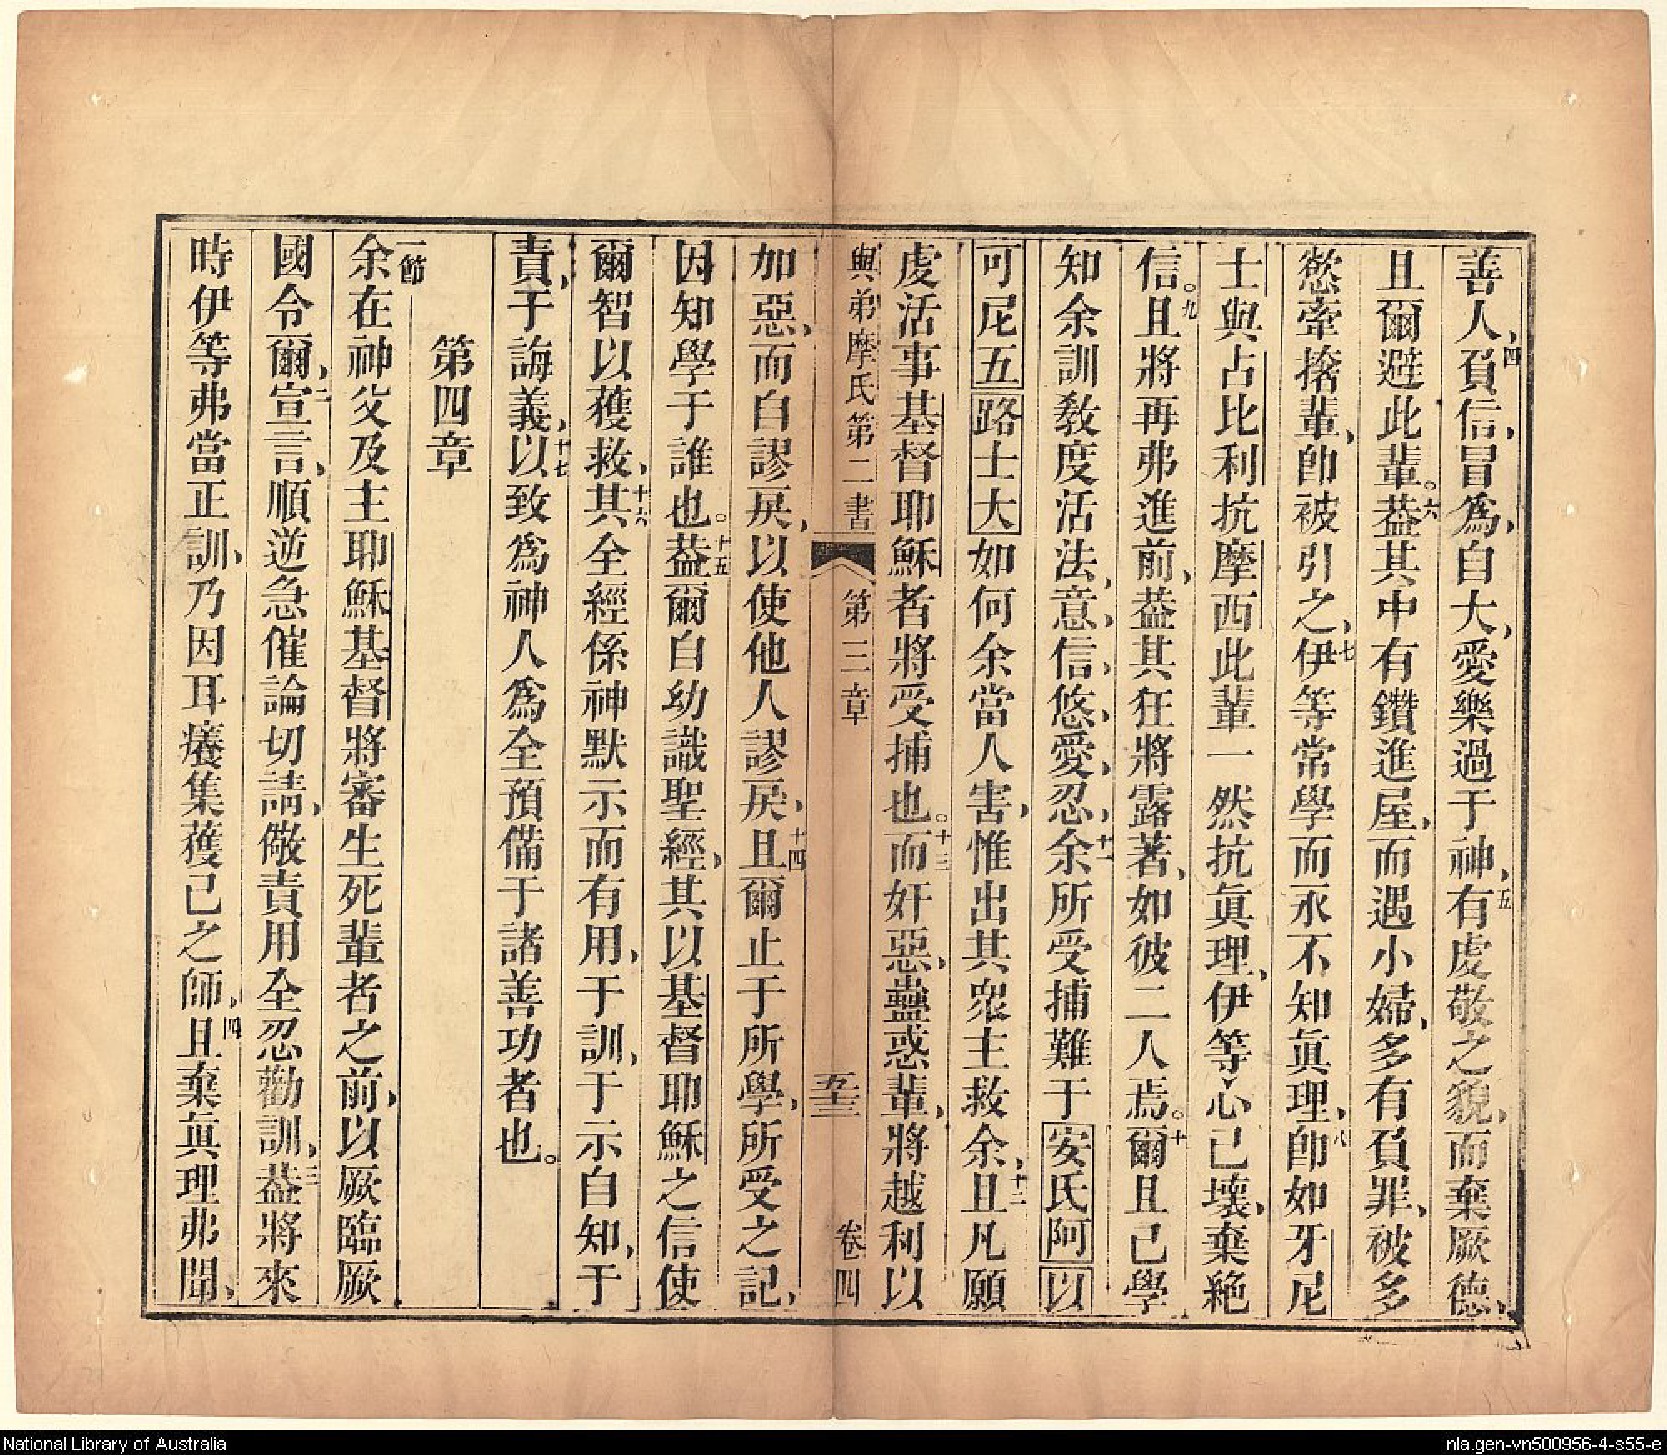 善人、四負信、冒爲、自大、愛樂過于神、五有虔敬之貌、而棄厥德、
且爾避此輩。六葢其中有鑽進屋、而遇小婦、多有負罪、被多
慾牽撩輩、卽被引之、七伊等常學而永不知眞理、八卽如牙尼
士與占比利抗摩西此輩一然抗眞理、伊等心已壞、棄絕
信。九且將再弗進前、葢其狂將露著、如彼二人焉。十爾且已學
知余訓教度活法、意、信、悠、愛、忍、十一余所受捕難于安氏阿以
可尼五路士大如何余當人害、惟出其衆主救余、十二且凡願
虔活事基督耶穌者將受捕也。十三而奸惡、蠱惑輩、將越利以
與弟摩氏第二書 第三章 五十三 卷四
加惡、而自謬戾、以使他人謬戾、十四且爾止于所學、所受之記、
因知學于誰也。十五葢爾自幼識聖經、其以基督耶穌之信使
爾智以獲救、十六其全經係神默示而有用、于訓、于示自知、于
責、于誨義、十七以致爲神人爲全預備于諸善功者也。
第四章
一節余在神父及主耶穌基督將審生死輩者之前、以厥臨厥
國令爾、二宣言、順逆急催論切請、儆責用全忍勸訓、三葢將來
時伊等弗當正訓、乃因耳癢集獲己之師、四且棄眞理弗聞、
National Library of Australia
nla.gen-vn500956-4-s55-e